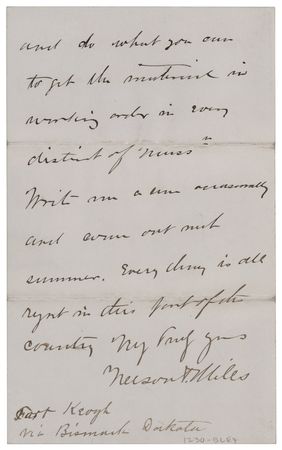 and do what you can
to get the material in
working order in every
district of "Miss"
Write me a line occasionally
and come out next
summer. Every thing is all
right in this part of the
country Very Truly yours
Nelson A. Miles
Fort Keogh
via Bismarck Dakota
1230-0684